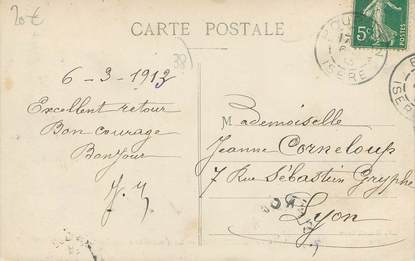 20€
CARTE POSTALE
5c
POSTES
ISERE
ISERE
38
6-3-1912
Excellent retour
Bon courage
Bonjour
Mademoiselle
Jeanne Corneloup
7 Rue Sébastien Gryphe
Lyon